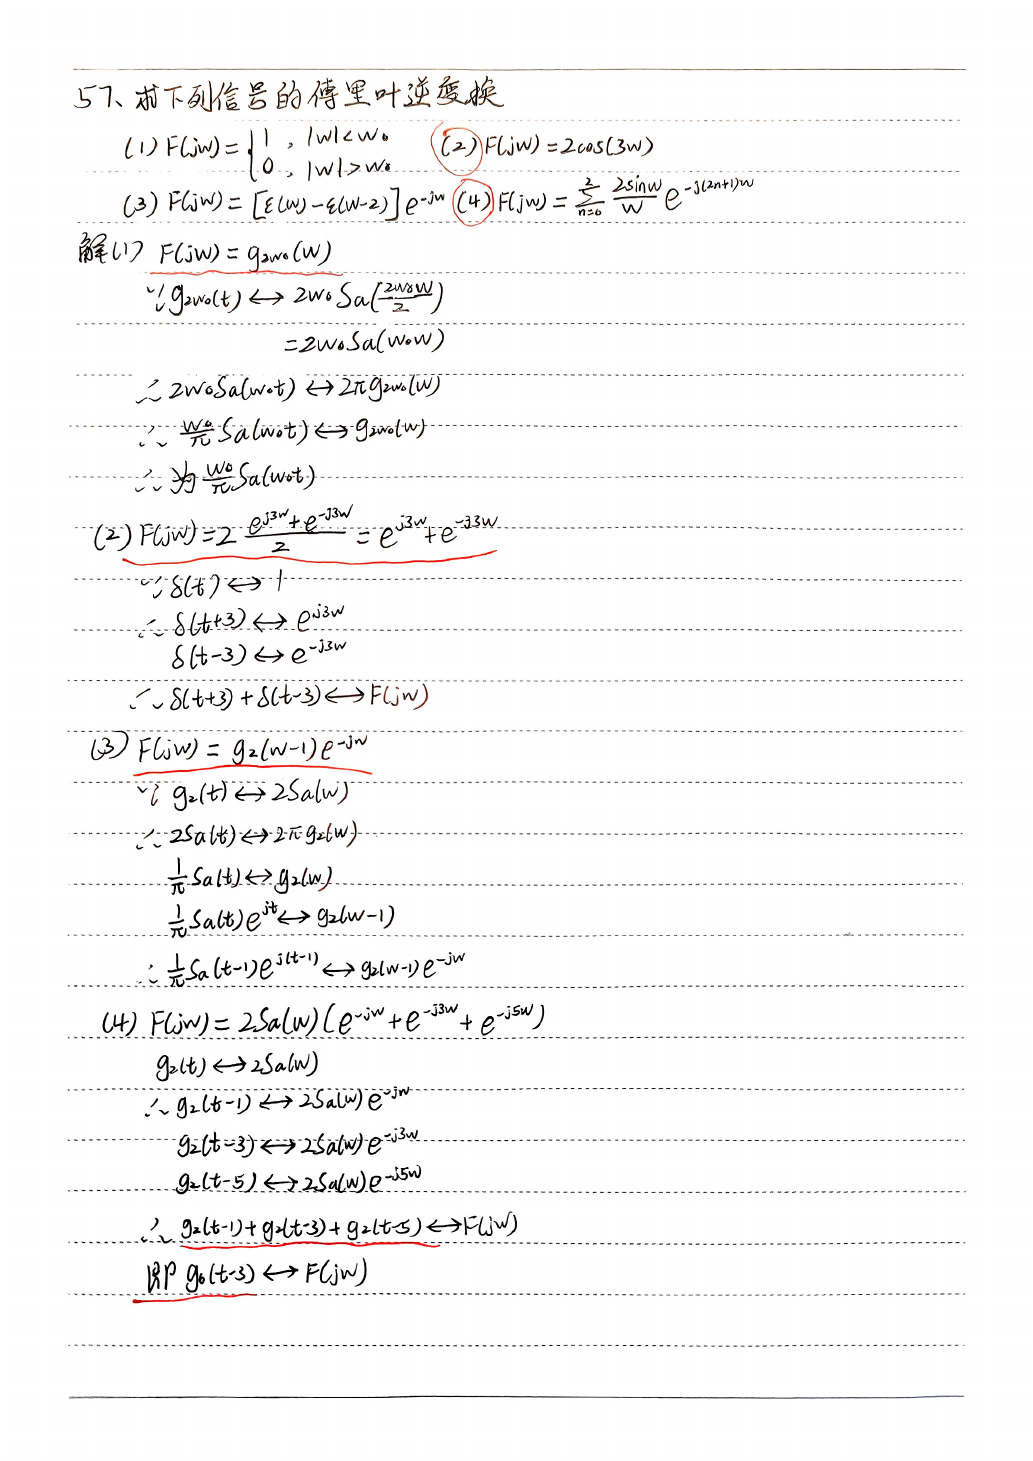 57、求下列信号的傅里叶逆变换
(1) F(jw) = { 1 , |w|<w₀ ; 0 , |w|>w₀ (2) F(jw) = 2cos(3w)
(3) F(jw) = [ε(w)-ε(w-2)] e^{-jw} (4) F(jw) = \sum_{n=0}^{2} \frac{2sinw}{w} e^{-j(2n+1)w}
解(1) F(jw) = g_{2w₀}(w)
∵ g_{2w₀}(t) ↔ 2w₀ Sa(\frac{2w₀w}{2})
= 2w₀Sa(w₀w)
∴ 2w₀Sa(w₀t) ↔ 2π g_{2w₀}(w)
∴ \frac{w₀}{π} Sa(w₀t) ↔ g_{2w₀}(w)
∴ 为 \frac{w₀}{π} Sa(w₀t)
(2) F(jw) = 2 \frac{e^{j3w}+e^{-j3w}}{2} = e^{j3w}+e^{-j3w}
∵ δ(t) ↔ 1
∴ δ(t+3) ↔ e^{j3w}
δ(t-3) ↔ e^{-j3w}
∴ δ(t+3) + δ(t-3) ↔ F(jw)
(3) F(jw) = g₂(w-1) e^{-jw}
∵ g₂(t) ↔ 2Sa(w)
∴ 2Sa(t) ↔ 2π g₂(w)
\frac{1}{π} Sa(t) ↔ g₂(w)
\frac{1}{π} Sa(t) e^{jt} ↔ g₂(w-1)
∴ \frac{1}{π} Sa(t-1) e^{j(t-1)} ↔ g₂(w-1) e^{-jw}
(4) F(jw) = 2Sa(w) (e^{-jw} + e^{-j3w} + e^{-j5w})
g₂(t) ↔ 2Sa(w)
∴ g₂(t-1) ↔ 2Sa(w) e^{-jw}
g₂(t-3) ↔ 2Sa(w) e^{-j3w}
g₂(t-5) ↔ 2Sa(w) e^{-j5w}
∴ g₂(t-1) + g₂(t-3) + g₂(t-5) ↔ F(jw)
即 g₆(t-3) ↔ F(jw)